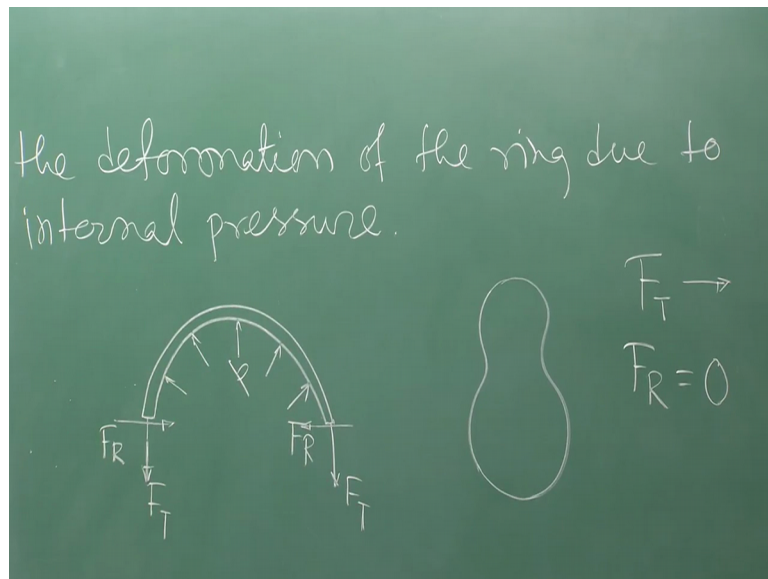 the deformation of the ring due to
internal pressure.
F_T →
F_R = 0
p
F_R
F_R
F_T
F_T